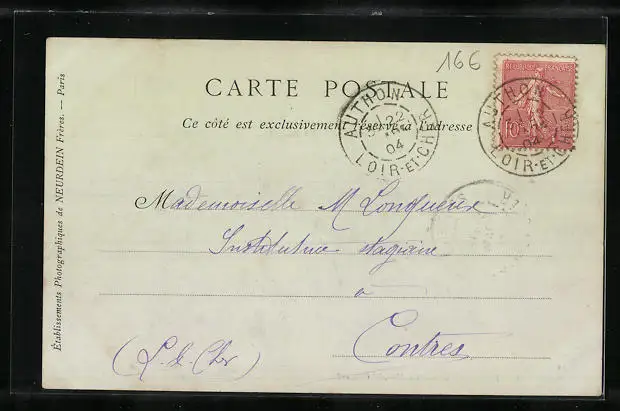 166
RÉPUBLIQUE FRANÇAISE
10
CARTE POSTALE
Ce côté est exclusivement réservé à l'adresse
AUTHON
22
04
LOIR-ET-CHER
AUTHON
04
LOIR-ET-CHER
Mademoiselle M Longueux
Institutrice stagiaire
à
Contres
(L. & Cher)
Établissements Photographiques de NEURDEIN Frères. — Paris